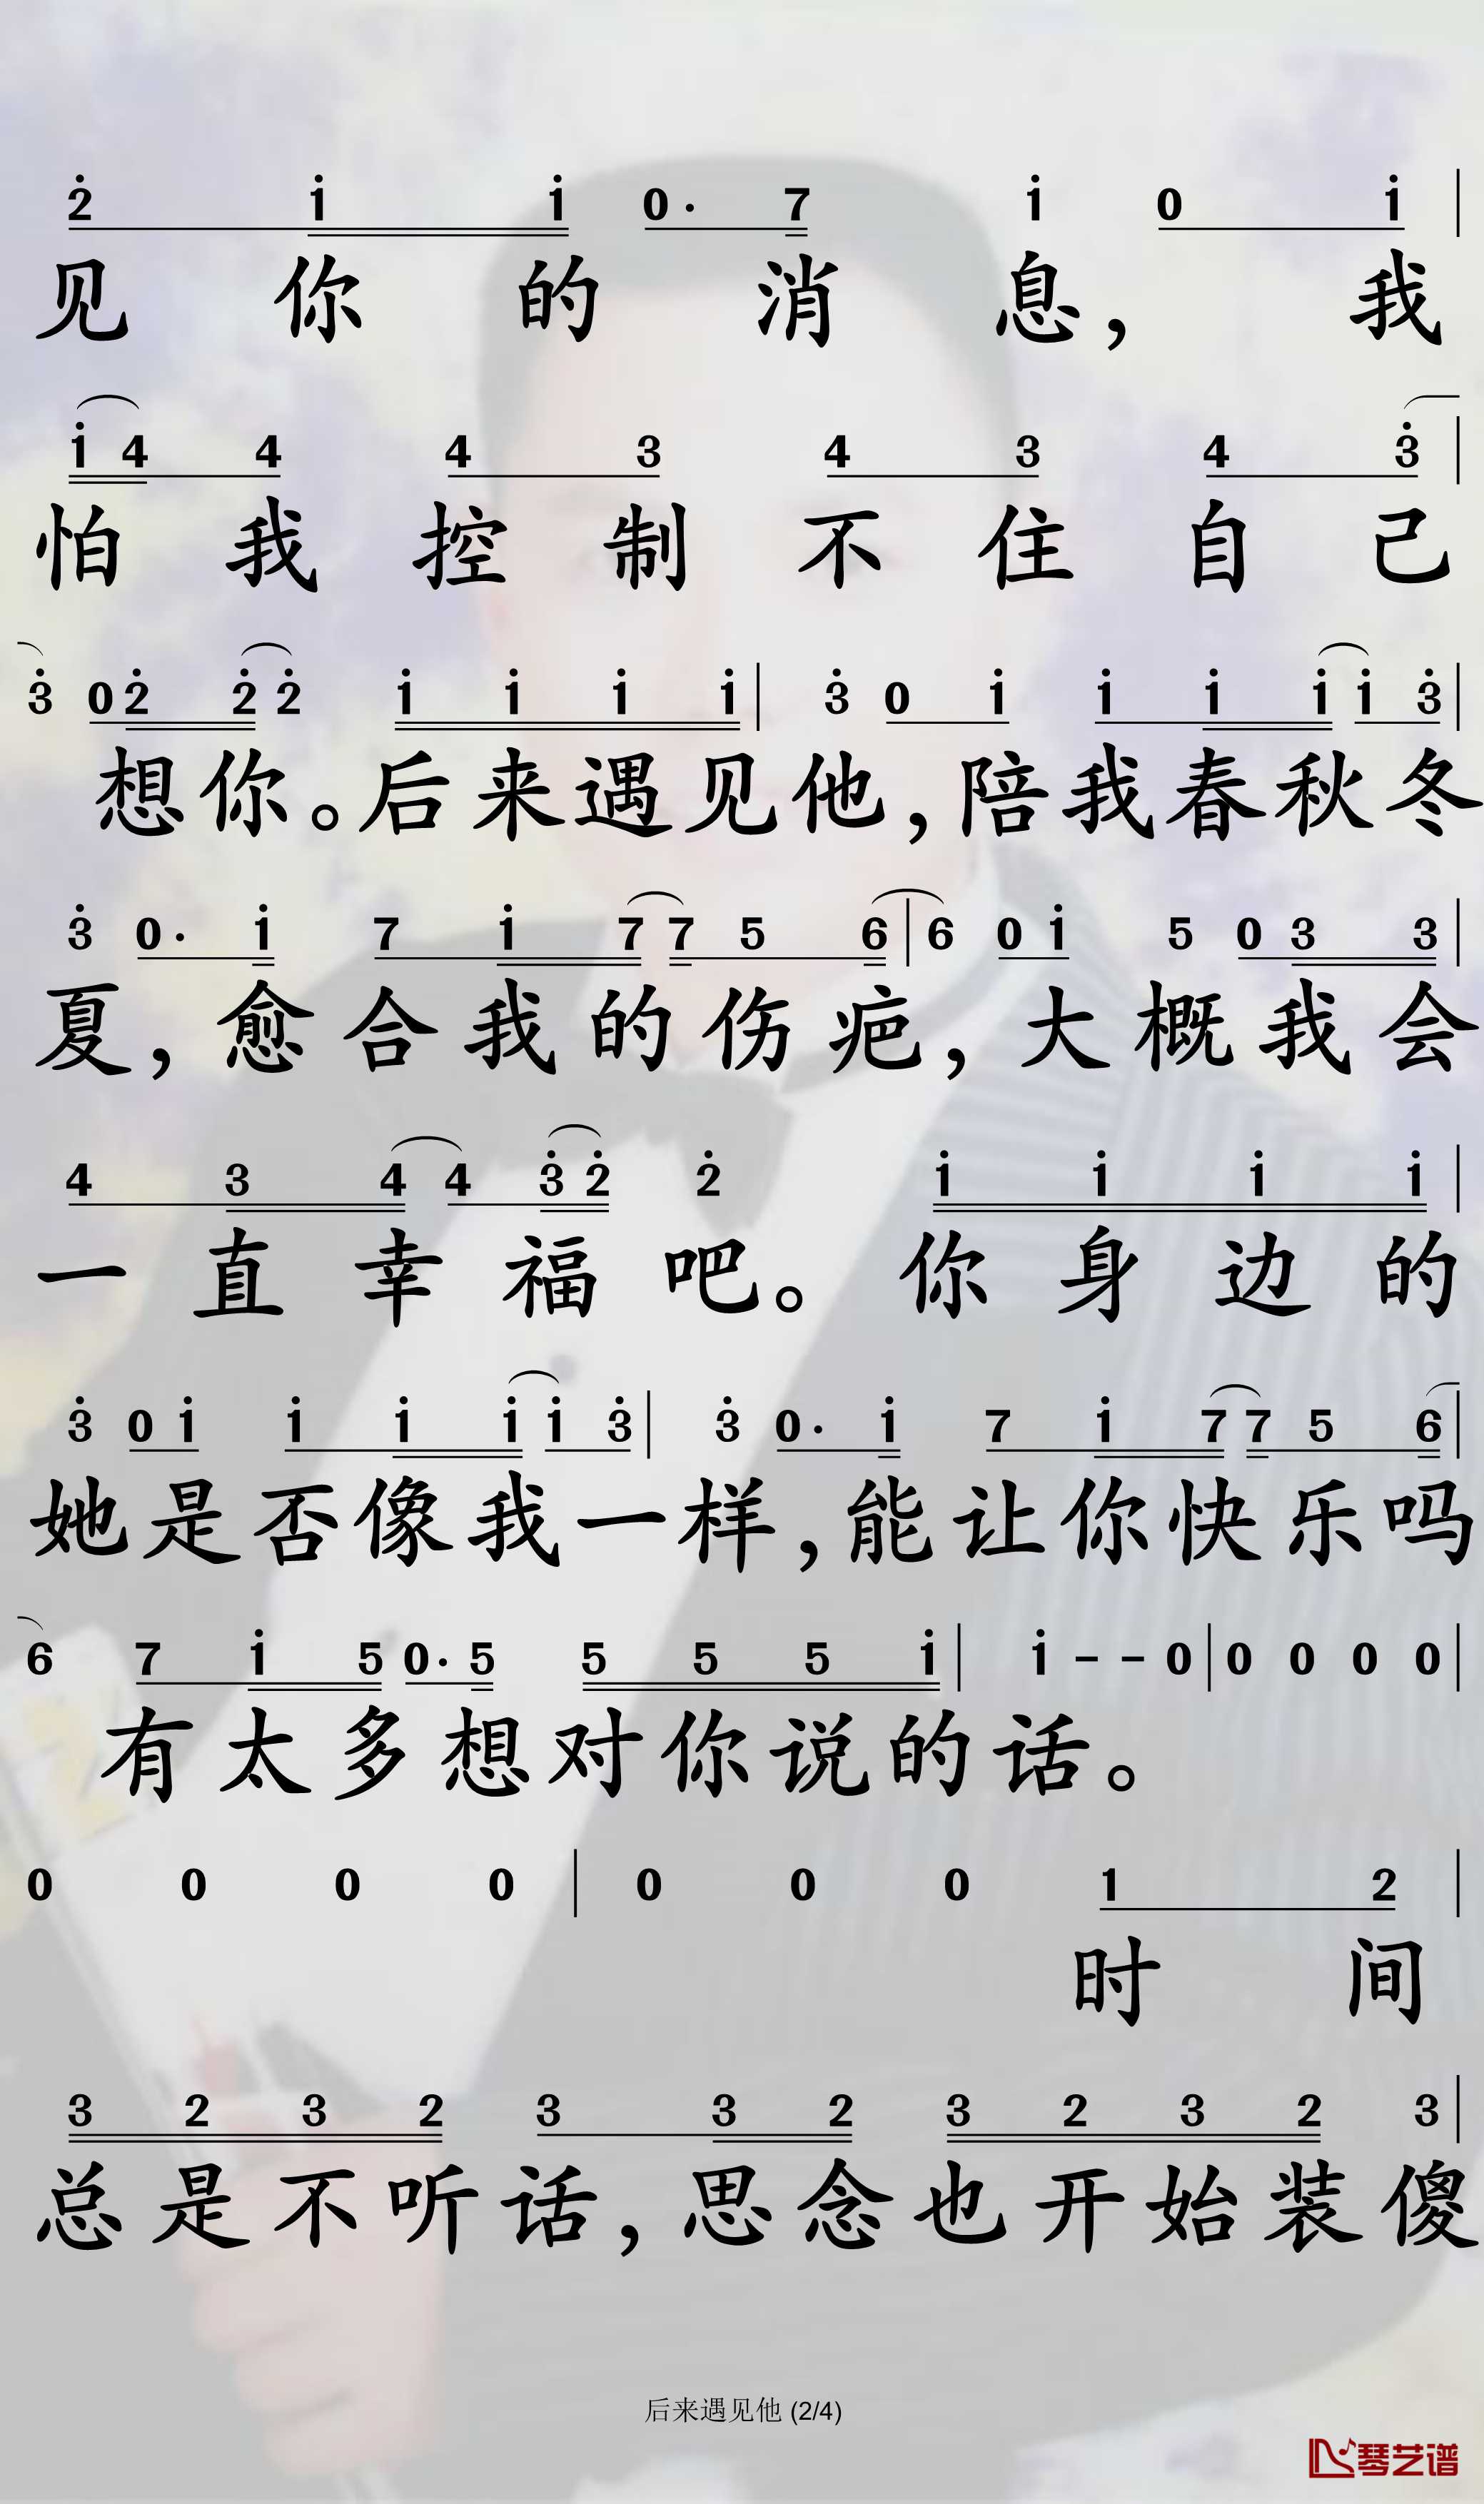 2̇ 1̇ 1̇ 0· 7 1̇ 0 1̇ |
见你的消息，我
1̇ 4 4 4 3 4 3 4 3̇ |
怕我控制不住自己
3̇ 0 2̇ 2̇ 2̇ 1̇ 1̇ 1̇ 1̇ | 3̇ 0 1̇ 1̇ 1̇ 1̇ 1̇ 3̇ |
想你。后来遇见他，陪我春秋冬
3̇ 0· 1̇ 7 1̇ 7 7 5 6 | 6 0 1̇ 5 0 3 3 |
夏，愈合我的伤疤，大概我会
4 3 4 4 3̇ 2̇ 2̇ 1̇ 1̇ 1̇ 1̇ |
一直幸福吧。你身边的
3̇ 0 1̇ 1̇ 1̇ 1̇ 1̇ 3̇ | 3̇ 0· 1̇ 7 1̇ 7 7 5 6 |
她是否像我一样，能让你快乐吗
6 7 1̇ 5 0· 5 5 5 5 1̇ | 1̇ - - 0 | 0 0 0 0 |
有太多想对你说的话。
0 0 0 0 | 0 0 0 1 2 |
时间
3 2 3 2 3 3 2 3 2 3 2 3 |
总是不听话，思念也开始装傻
后来遇见他 (2/4)
琴艺谱